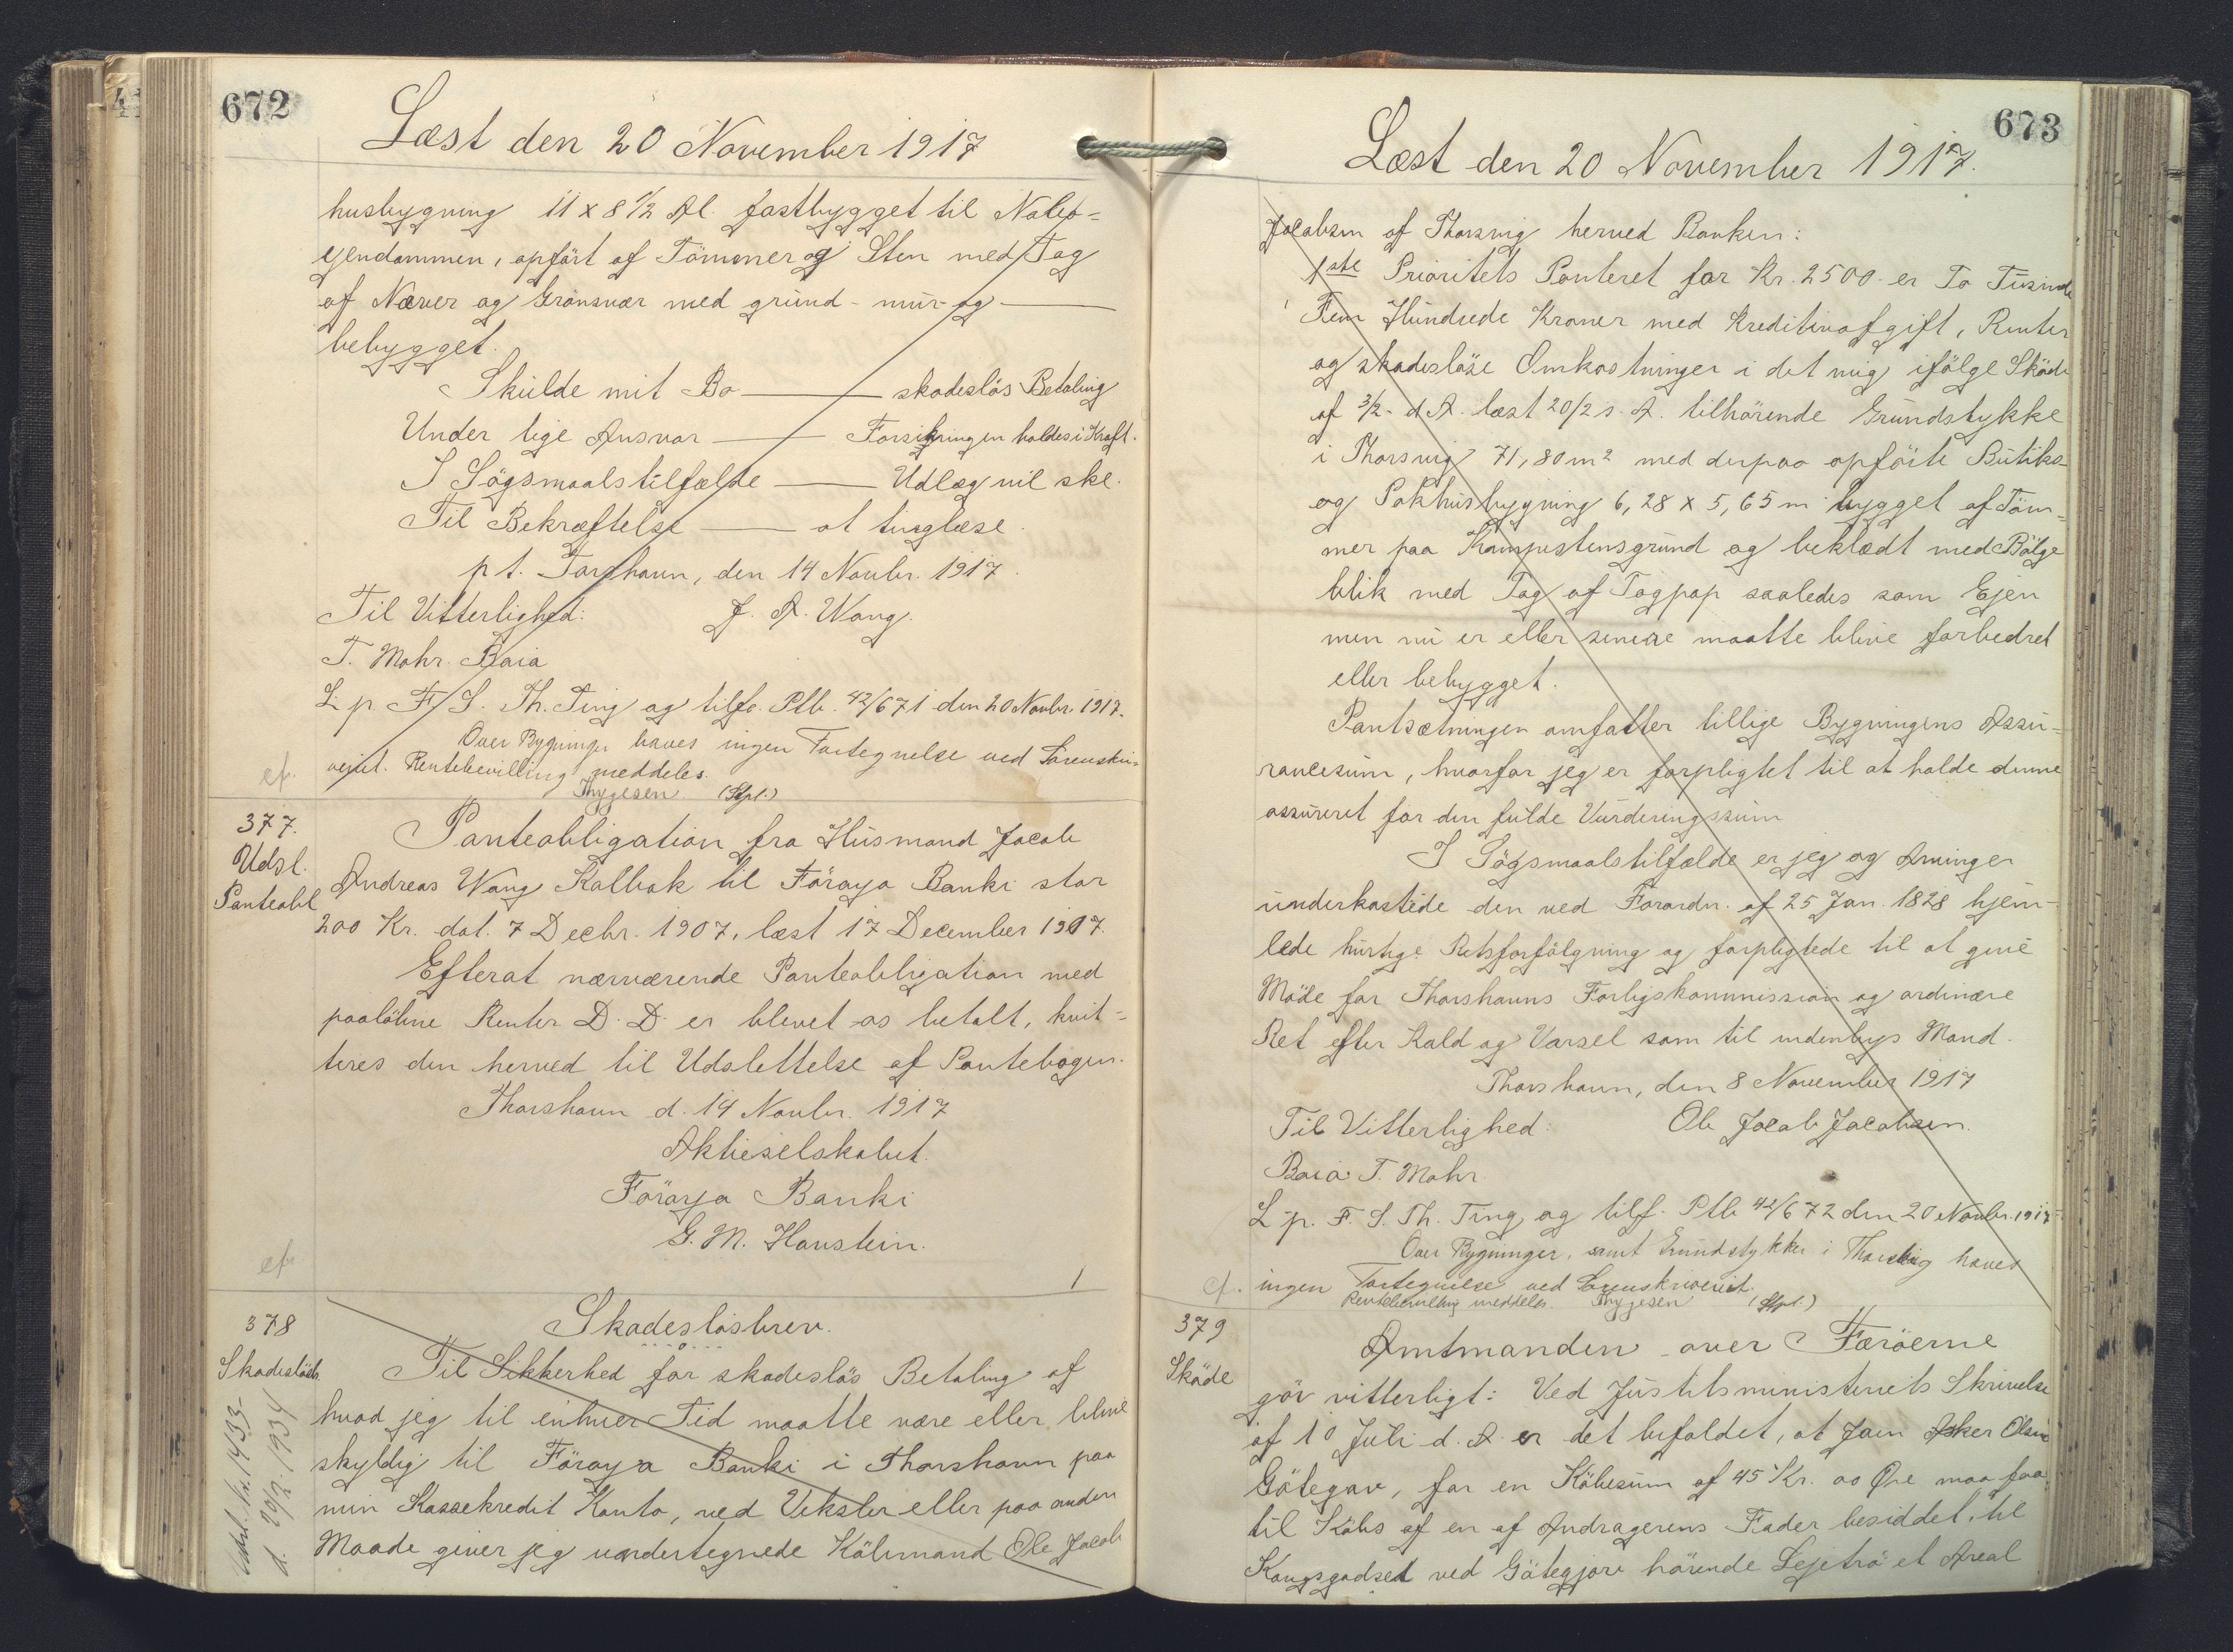 672
Læst den 20 November 1917
husbygning 11 x 8 1/2 Al. fastbygget til Nabo-
ejendommen, opfört af Tömmer og Sten med Tag
af Næver og Grönsvær med grund- mur- og —
bebygget.
Skulde mit Bo — skadeslös Betaling
Under lige Ansvar — Forsikringen holdes i Kraft.
I Sögsmaalstilfælde — Udlæg vil ske.
Til Bekræftelse — at tinglæse.
pt. Torshavn, den 14 Novbr. 1917.
Til Vitterlighed: J. A. Wang.
T. Mohr. Baia
L. p. F. S. Th. Ting og tilfr. Ptb. 42/671 den 20 Novbr. 1917.
Over Bygninger haves ingen Fortegnelse ved Sörenskri-
veriet. Rentebevilling meddeles.
Thygesen (Stpl.)
cf.
377.
Udsl.
Panteobl
Panteobligation fra Husmand Jacob
Andreas Wang Kalbak til Föroya Banki stor
200 Kr. dat. 7 Decbr. 1907, læst 17 December 1907.
Efterat nærværende Panteobligation med
paalöbne Renter D. D. er blevet os betalt, kvit-
teres den herved til Udslettelse af Pantebogen.
Thorshavn d. 14 Novbr. 1917
Aktieselskabet.
Föroya Banki
G. M. Hanstein.
cf.
1
378
Skadeslösb.
Udsl. Nr. 1433-
d. 20/2. 1934
Skadeslösbrev.
Til Sikkerhed for skadeslös Betaling af
hvad jeg til enhver Tid maatte være eller blive
skyldig til Föroya Banki i Thorshavn paa
min Kassekredit Konto, ved Veksler eller paa anden
Maade giver jeg undertegnede Köbmand Ole Jacob
673
Læst den 20 November 1917.
Jacobsen af Thorsvig herved Banken:
1ste Prioritets Panteret for Kr. 2500 er To Tusinde
Fem Hundrede Kroner med Kreditivafgift, Renter
og skadeslöse Omkostninger i det mig ifölge Sköde
af 3/2- d. A. læst 20/2 s. A. tilhörende Grundstykke
i Thorsvig 71,80 m2 med derpaa opförte Butiks-
og Pakhusbygning 6,28 x 5,65 m bygget af Töm-
mer paa Kampestensgrund og beklædt med Bölge
blik med Tag af Tagpap saaledes som Ejen
men nu er eller senere maatte blive forbedret
eller bebygget.
Pantsætningen omfatter tillige Bygningens Assu-
rancesum, hvorfor jeg er forpligtet til at holde denne
assureret for den fulde Vurderingssum
I Sögsmaalstilfælde er jeg og Arvinger
underkastede den ved Forordn. af 25 Jan. 1828 hjem-
lede hurtige Retsforfölgning og forpligtede til at give
Möde for Thorshavns Forligskommission og ordinære
Ret efter Kald og Varsel som til indenbys Mand.
Thorshavn, den 8 November 1917
Til Vitterlighed: Ole Jacob Jacobsen.
Baia T. Mohr
L. p. F. S. Th. Ting og tilf. Ptb 42/672 den 20 Novbr. 1917-
Over Bygninger, samt Grundstykker i Thorsvig haves
ingen Fortegnelse ved Sörenskriveriet.
Rentebevilling meddeles. Thygesen (Stpl.)
cf.
379
Sköde
Amtmanden over Færöerne
gör vitterligt: Ved Justitsministeriets Skrivelse
af 10 Juli d. A. er det bifaldet, at Joen Asker Olsen
Götegav, for en Köbesum af 45 Kr. 00 Øre maa faa
til Köbs af en af Andragerens Fader besiddet, til
Kongsgodset ved Götegjov hörende Lejetrö et Areal